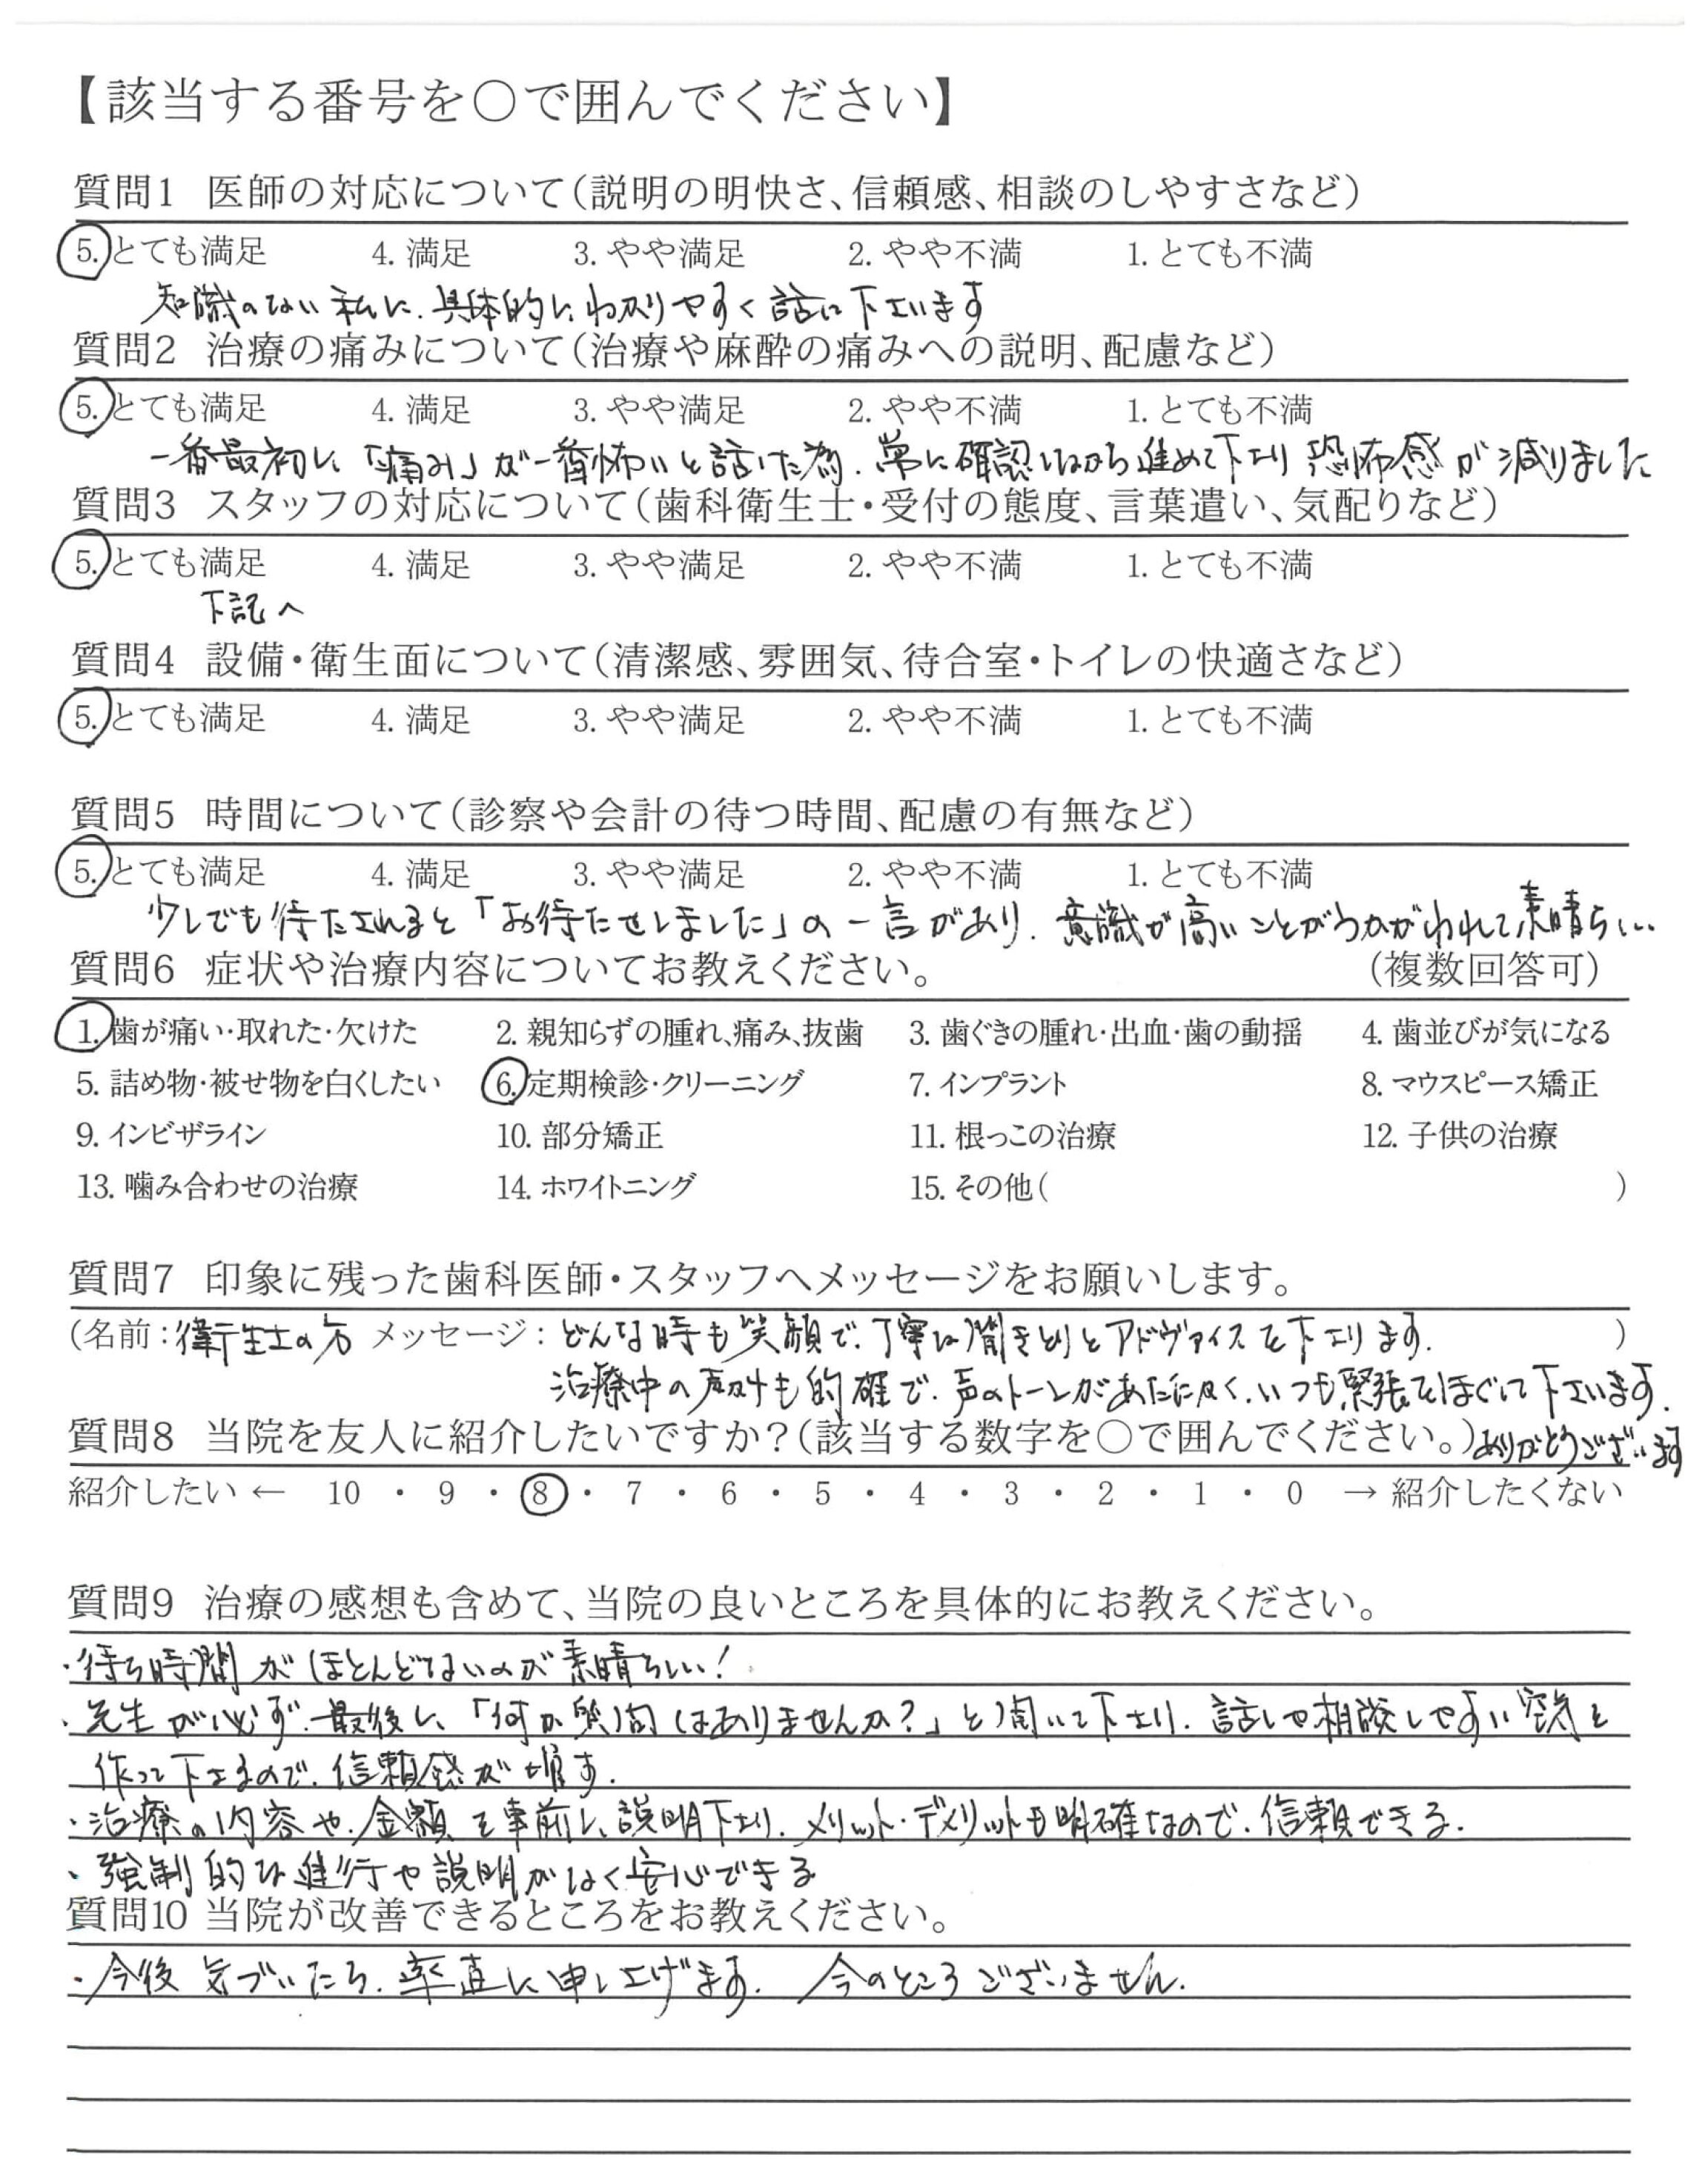 【該当する番号を〇で囲んでください】
質問1 医師の対応について(説明の明快さ、信頼感、相談のしやすさなど)
5. とても満足 4. 満足 3. やや満足 2. やや不満 1. とても不満
知識のない私に、具体的に、わかりやすく話して下さいます
質問2 治療の痛みについて(治療や麻酔の痛みへの説明、配慮など)
5. とても満足 4. 満足 3. やや満足 2. やや不満 1. とても不満
一番最初に、「痛み」が一番怖いと話した為、常に確認しながら進めて下さり恐怖感が減りました
質問3 スタッフの対応について(歯科衛生士・受付の態度、言葉遣い、気配りなど)
5. とても満足 4. 満足 3. やや満足 2. やや不満 1. とても不満
下記へ
質問4 設備・衛生面について(清潔感、雰囲気、待合室・トイレの快適さなど)
5. とても満足 4. 満足 3. やや満足 2. やや不満 1. とても不満
質問5 時間について(診察や会計の待つ時間、配慮の有無など)
5. とても満足 4. 満足 3. やや満足 2. やや不満 1. とても不満
少しでも待たされると「お待たせしました」の一言があり、意識が高いことがうかがわれて素晴らしい
質問6 症状や治療内容についてお教えください。 (複数回答可)
1. 歯が痛い・取れた・欠けた 2. 親知らずの腫れ、痛み、抜歯 3. 歯ぐきの腫れ・出血・歯の動揺 4. 歯並びが気になる
5. 詰め物・被せ物を白くしたい 6. 定期検診・クリーニング 7. インプラント 8. マウスピース矯正
9. インビザライン 10. 部分矯正 11. 根っこの治療 12. 子供の治療
13. 噛み合わせの治療 14. ホワイトニング 15. その他( )
質問7 印象に残った歯科医師・スタッフへメッセージをお願いします。
(名前：衛生士の方 メッセージ：どんな時も笑顔で、丁寧な聞きとりとアドヴァイスを下さります。 )
治療中の声かけも的確で、声のトーンがあたたかく、いつも緊張をほぐして下さいます。
質問8 当院を友人に紹介したいですか？(該当する数字を〇で囲んでください。) ありがとうございます
紹介したい ← 10 ・ 9 ・ 8 ・ 7 ・ 6 ・ 5 ・ 4 ・ 3 ・ 2 ・ 1 ・ 0 → 紹介したくない
質問9 治療の感想も含めて、当院の良いところを具体的にお教えください。
・待ち時間がほとんどないのが素晴らしい！
・先生が必ず、最後に、「何か質問はありませんか？」と聞いて下さり、話しや相談しやすい空気を
作って下さるので、信頼感が増す。
・治療の内容や、金額を事前に、説明下さり、メリット・デメリットも明確なので、信頼できる。
・強制的な進行や説明がなく安心できる
質問10 当院が改善できるところをお教えください。
・今後気づいたら、率直に申し上げます。 今のところございません。